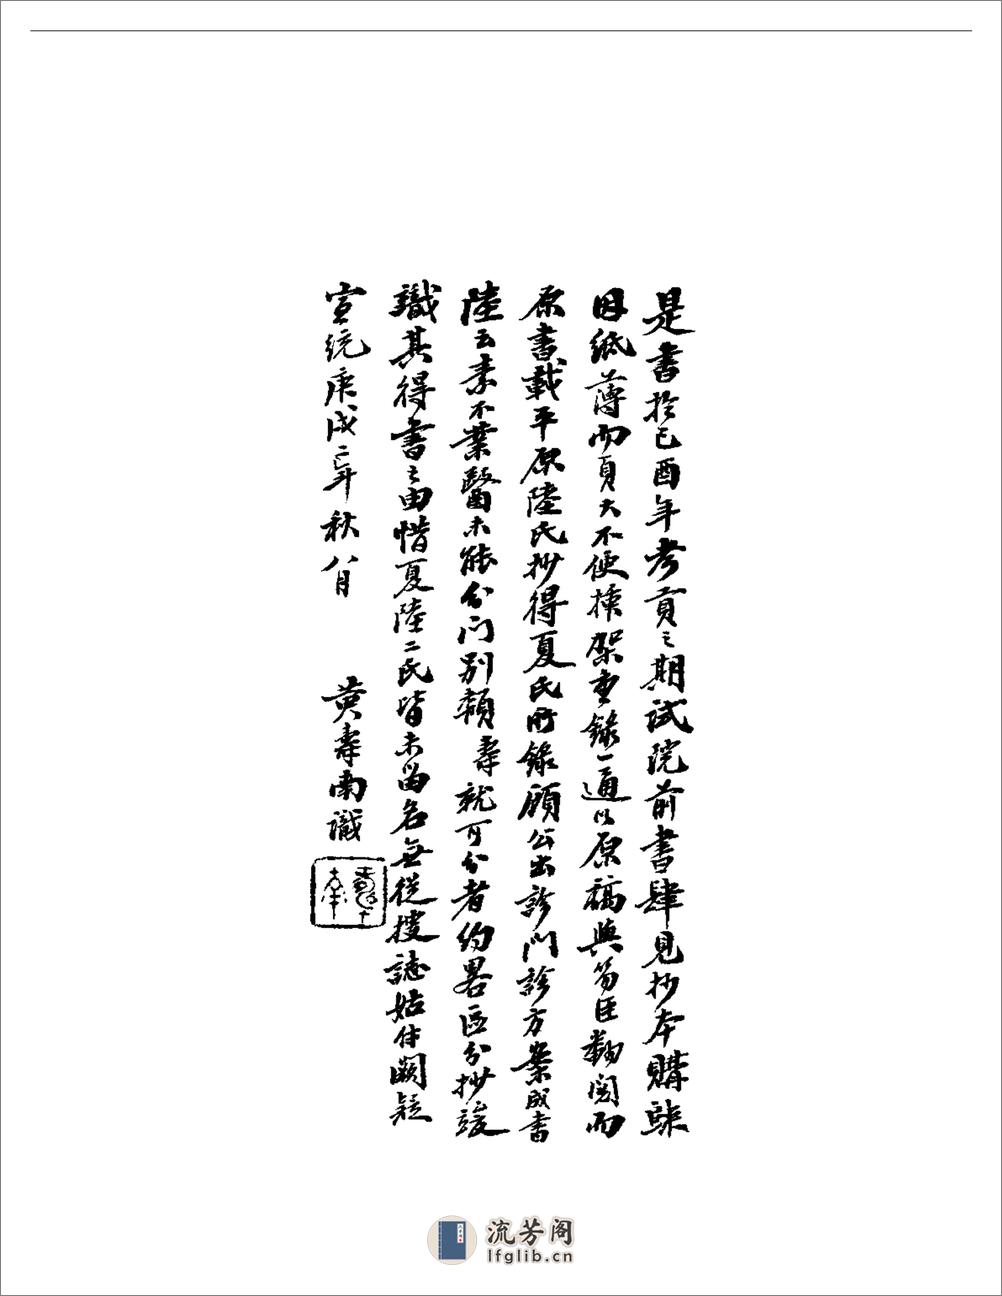 是書於己酉年考貢之期試院前書肆見抄本購歸
因紙薄而頁大不便插架重錄一通以原稿與芴臣翻閱而
原書載平原陸氏抄得夏氏所錄顧公出診門診方案成書
陸云素不業醫未能分門別類壽就可分者約畧區分抄竣
識其得書之由惜夏陸二氏皆未留名無從搜誌姑付闕疑
宣統庚戌二年秋八月 黃壽南識
流芳阁
lfglib.cn